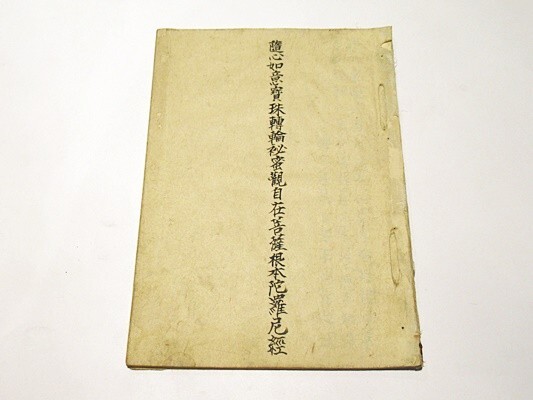 隨心如意寶珠轉輪祕密觀自在菩薩根本陀羅尼經